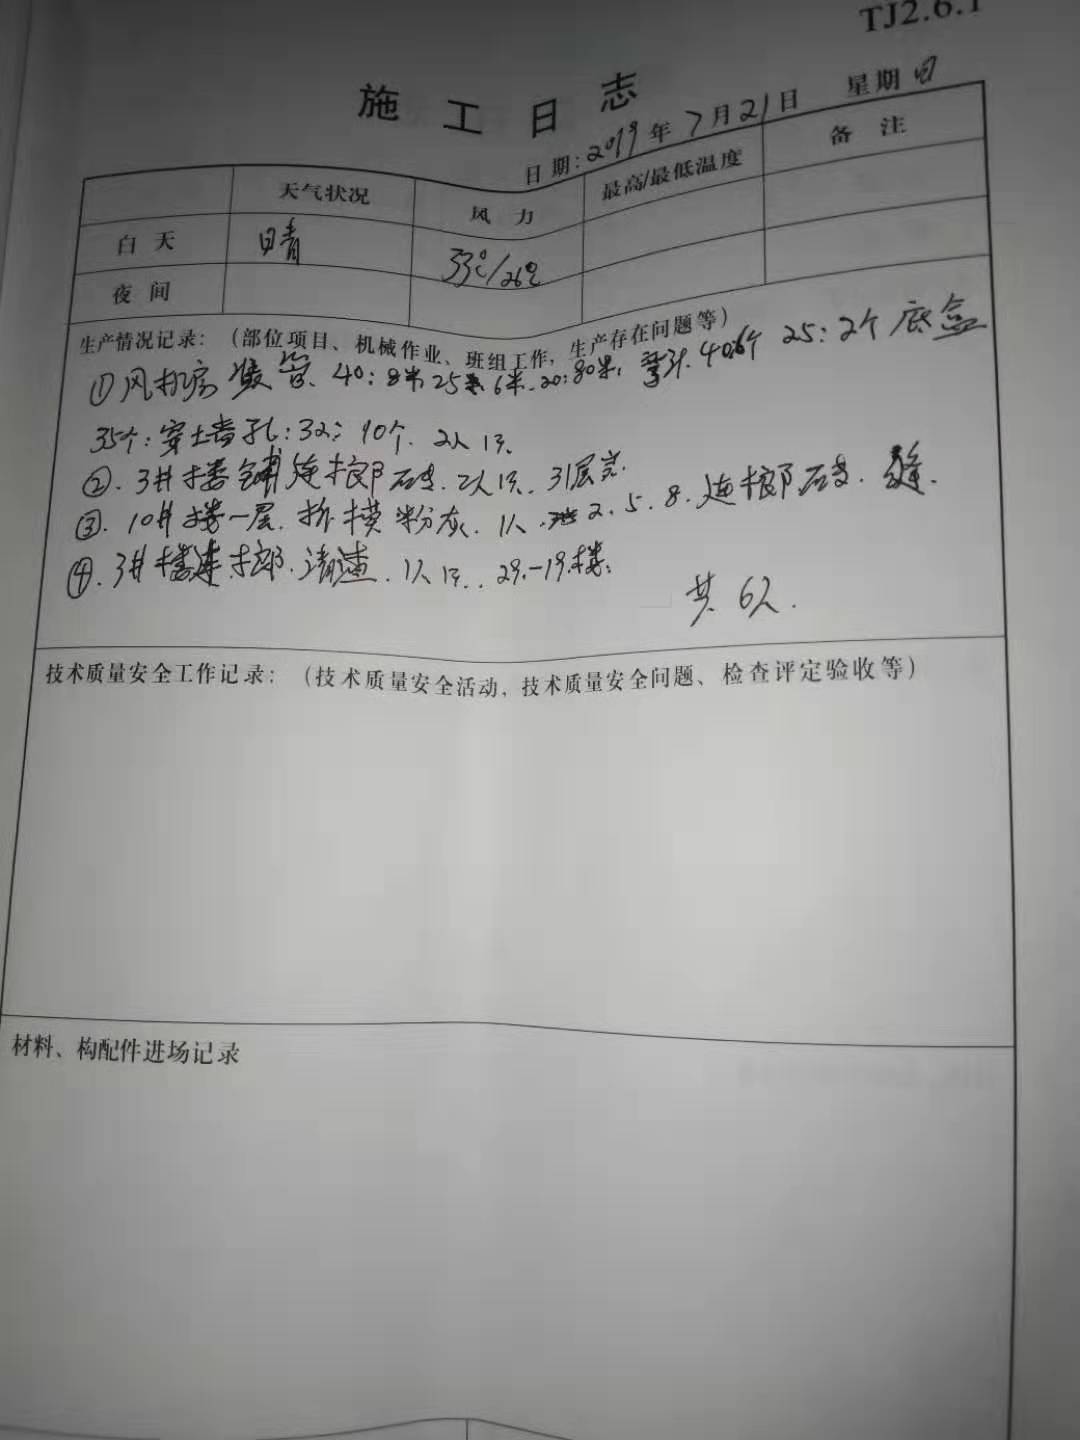 TJ2.6.1
施工日志
日期:2019年7月21日 星期日
天气状况 风力 最高/最低温度 备注
白天 晴 33℃/26℃
夜间
生产情况记录：（部位项目、机械作业、班组工作，生产存在问题等）
①风机房 管、40:8米25 6米、20:80米, 40:6个 25:2个底盒
35个:穿墙孔:32:10个.2人
②.3#楼铺连廊砖.2人.31层完.
③.10#楼一层.拆模粉灰.1人. 2.5.8.连廊砖.缝.
④.3#楼连廊.清渣.1人..29.-19.楼:
共6人.
技术质量安全工作记录：（技术质量安全活动，技术质量安全问题、检查评定验收等）
材料、构配件进场记录